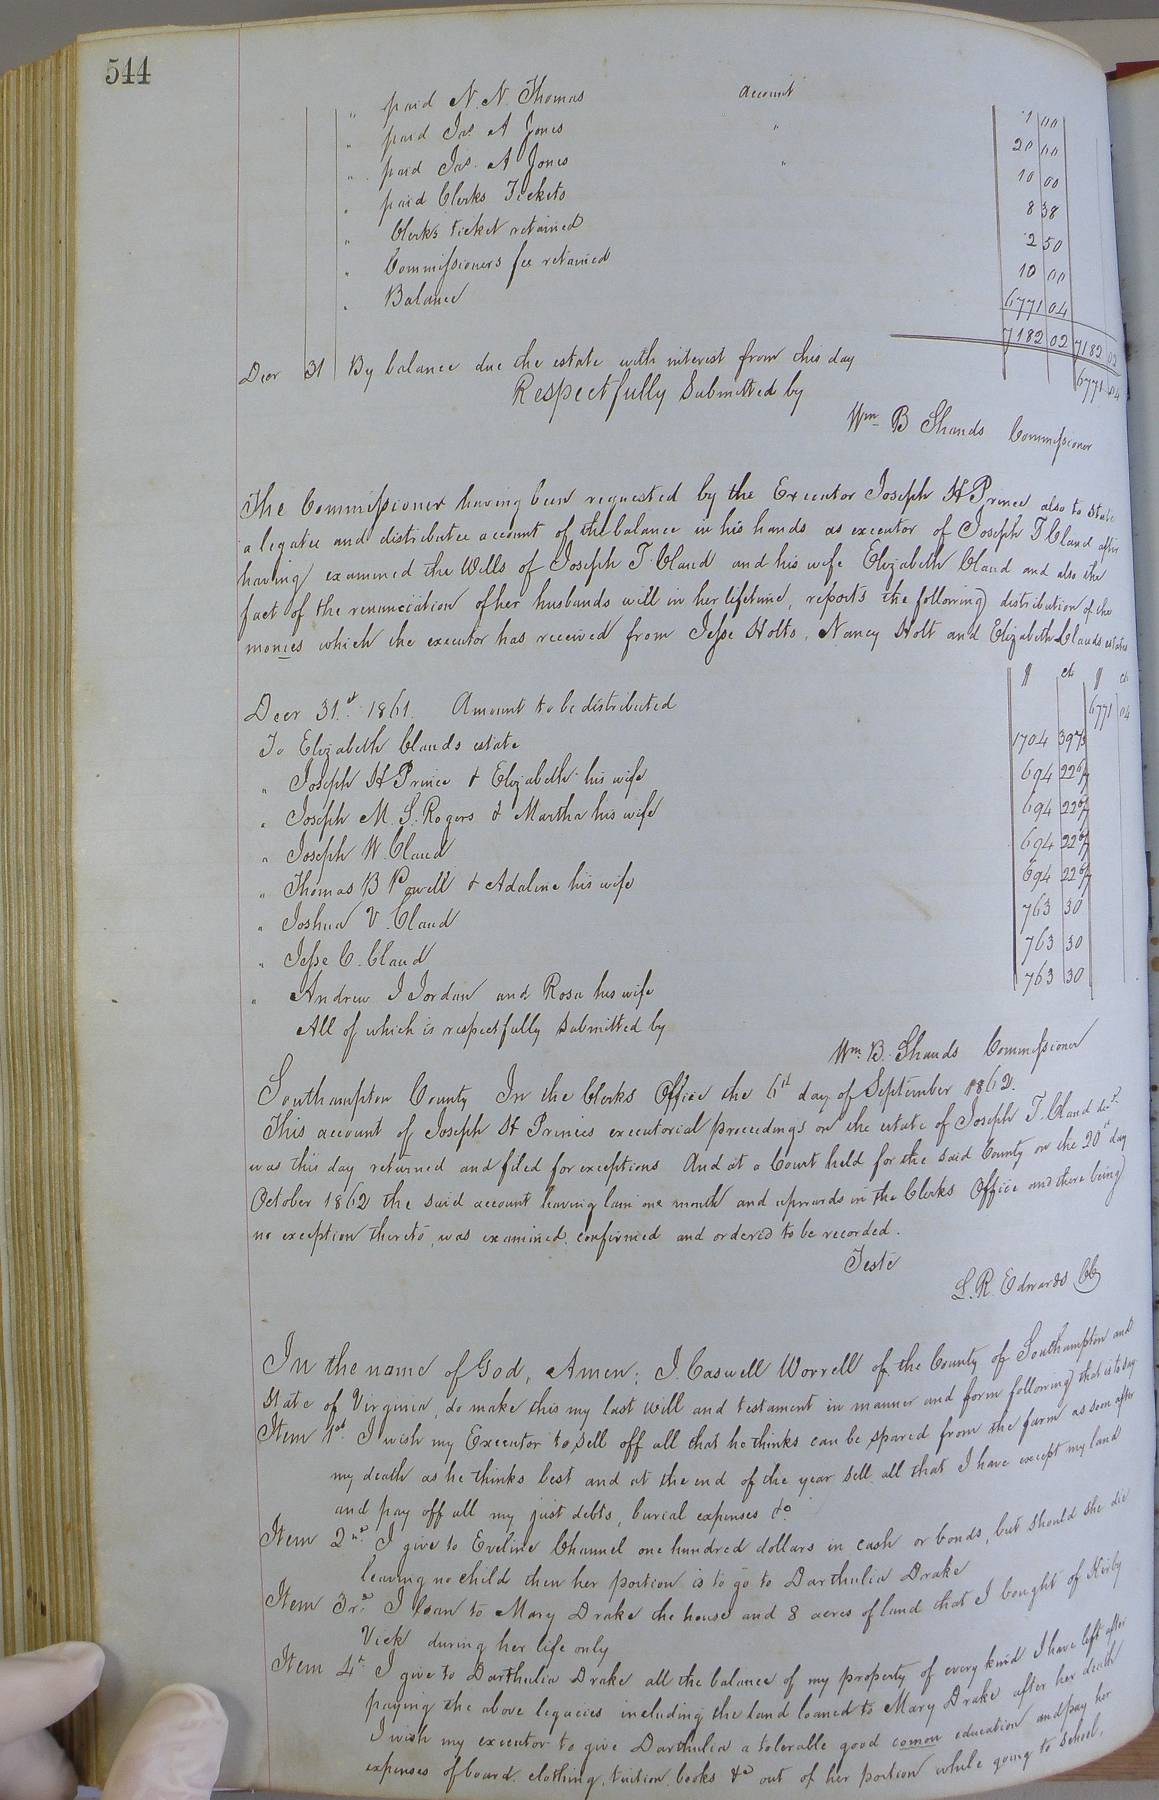 544
" paid N. N. Thomas Account 1 00
" paid Jas. A Jones " 20 00
" paid Jas. A Jones " 10 00
" paid Clerks Tickets 8 38
" Clerks ticket retained 2 50
" Commissioners fee retained 10 00
" Balance 6771 04
7182 02 7182 02
Decr 31 By balance due the estate with interest from this day 6771 04
Respectfully Submitted by
Wm B Shands Commissioner
The Commissioner having been requested by the Executor Joseph H Prince also to state
a legatee and distributee account of the balance in his hands as executor of Joseph T. Claud after
having examined the Wills of Joseph T. Claud and his wife Elizabeth Claud and also the
fact of the renunciation of her husbands will in her lifetime, reports the following distribution of the
monies which the executor has received from Jesse Holts, Nancy Holt and Elizabeth Clauds estates
$ cts $ cts
Decr 31st 1861. Amount to be distributed 6771 04
To Elizabeth Clauds estate 1704
" Joseph H Prince & Elizabeth his wife 694 22 6/7
" Joseph M. S. Rogers & Martha his wife 694 22 6/7
" Joseph W. Claud 694 22 6/7
" Thomas B Powell & Adaline his wife 694 22 6/7
" Joshua V. Claud 763 30
" Jesse C. Claud 763 30
" Andrew J Jordan and Rosa his wife 763 30
All of which is respectfully submitted by
Wm. B. Shands Commissioner
Southampton County In the Clerks Office the 6th day of September 1862.
This account of Joseph H Princes executorial proceedings on the estate of Joseph T. Claud decd.
was this day returned and filed for exceptions And at a Court held for the said County on the 20th day
October 1862 the said account having lain one month and upwards in the Clerks Office and there being
no exception thereto, was examined, confirmed and ordered to be recorded.
Teste
L. R. Edwards CC
In the name of God, Amen; I. Caswell Worrell of the County of Southampton and
State of Virginia, do make this my last will and testament in manner and form following that is to say
Item 1st. I wish my Executor to sell off all that he thinks can be spared from the farm as soon after
my death as he thinks best and at the end of the year sell all that I have except my land
and pay off all my just debts, burial expenses &c
Item 2nd I give to Eveline Channel one hundred dollars in cash or bonds, but should she die
leaving no child then her portion is to go to Darthulia Drake
Item 3rd. I loan to Mary Drake the house and 8 acres of land that I bought of Kirby
Vick during her life only
Item 4th I give to Darthulia Drake all the balance of my property of every kind I have left after
paying the above legacies including the land loaned to Mary Drake after her death
I wish my executor to give Darthulia a tolerable good comon education and pay her
expenses of board, clothing, tuition, books &c out of her portion while going to school.